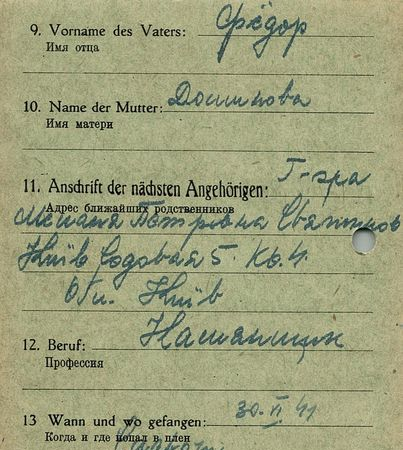 9. Vorname des Vaters: Фёдор
Имя отца
10. Name der Mutter:
Имя матери
11. Anschrift der nächsten Angehörigen:
Адрес ближайших родственников
Петривна
Київ Садовая 5. Кв. 4.
Обл. Київ
12. Beruf:
Профессия
13 Wann und wo gefangen: 30. VI 41
Когда и где попал в плен